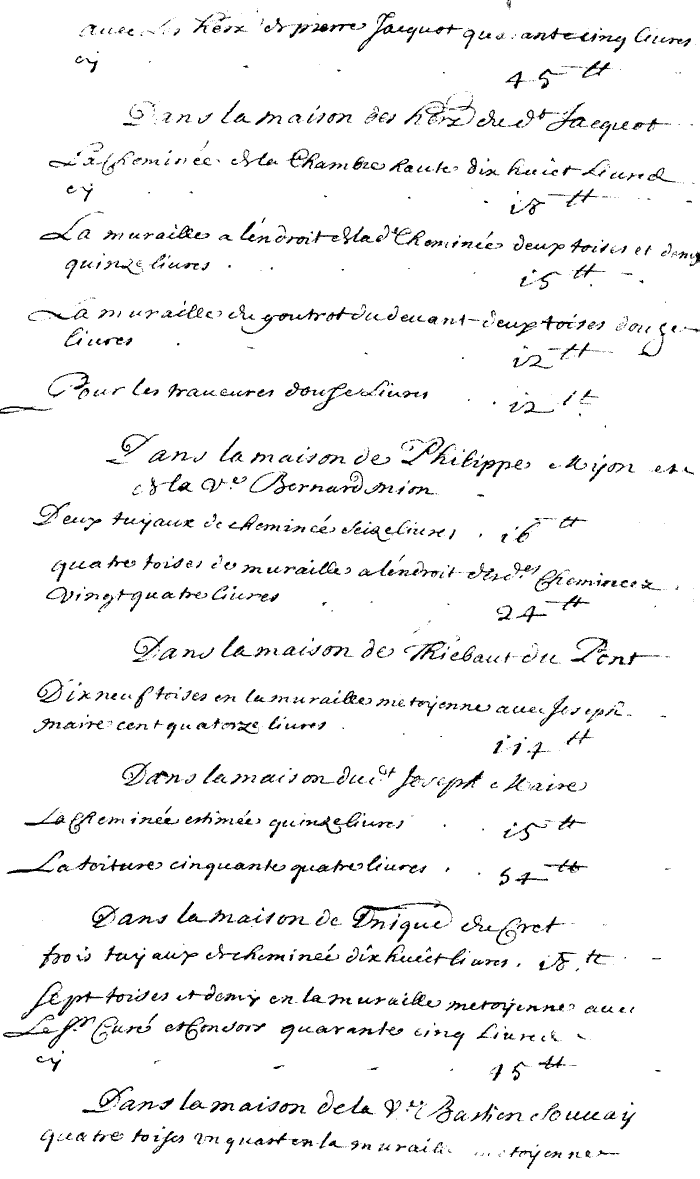 avec les herz de pierre Jacquot quarante cinq livres
cy
45 tt
Dans la maison des herz du dt Jacquot
La Cheminée de la Chambre haute dix huict Livres
cy
18 tt
La muraille a léndroit de lad. Cheminée deux toises et demy
quinze livres
15 tt
La muraille du goutrot du devant deux toises douze
livres
12 tt
Pour les traveures douze Livres 12 tt
Dans la maison de Philippe Mijon et
de la Ve Bernard mion
Deux tuyaux de cheminée seize livres 16 tt
quatre toises de muraille a léndroit desdes Chemineez
vingt quatre livres
24 tt
Dans la maison de Thiebaut du Pont
Dix neuf toises en la muraille metoyenne avec Joseph
maire cent quatorze livres
114 tt
Dans la maison du dt Joseph Maire
La Cheminée estimée quinze livres 15 tt
La toiture cinquante quatre livres 54 tt
Dans la maison de du Cret
trois tuyaux de cheminée dix huict livres. 18. tt
Sept toises et demy en la muraille metoyenne avec
Le Sr Curé et Consors quarante cinq Livres
cy
45 tt
Dans la maison de la Ve Bastien
quatre toises un quart en la muraille metoyenne